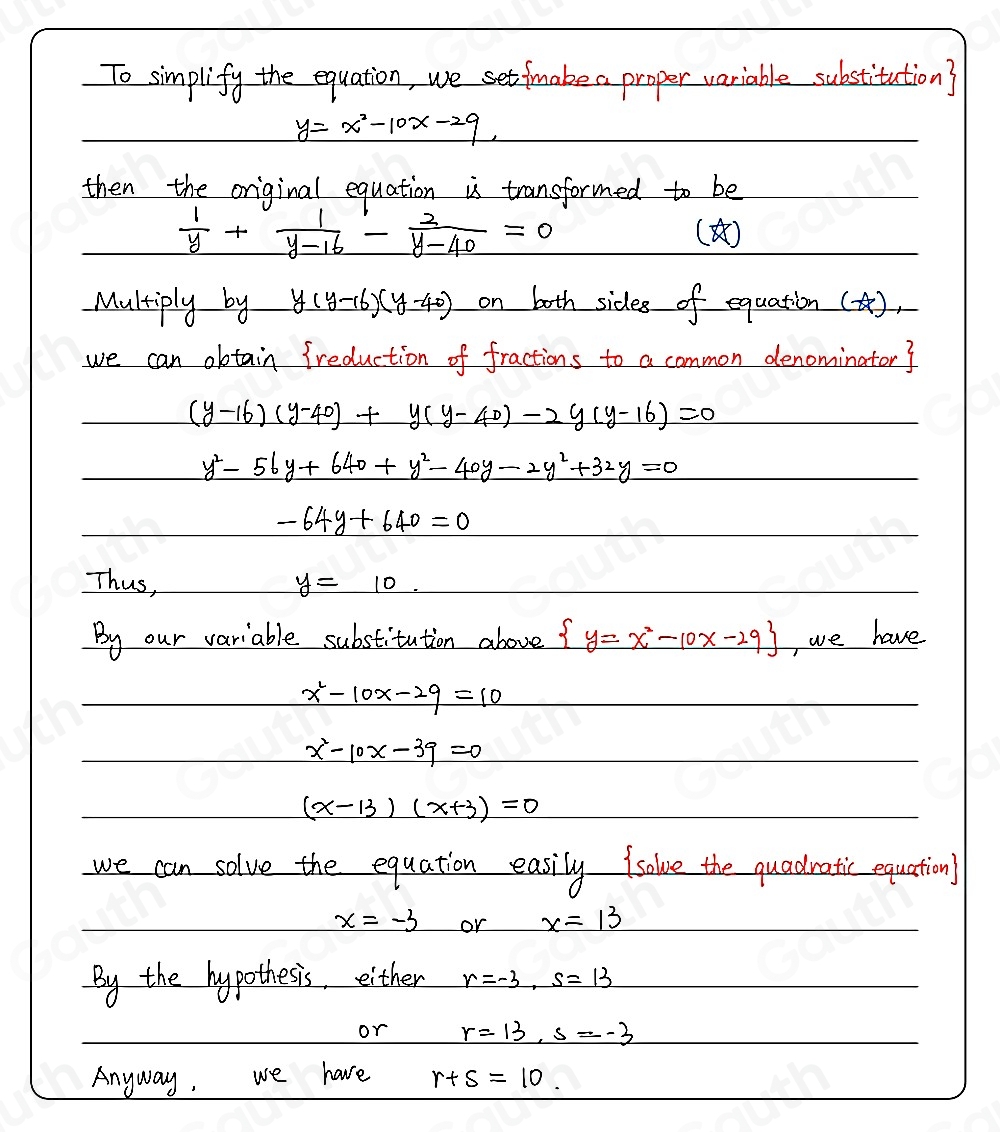 To simplify the equation, we set {make a proper variable substitution}
y = x² - 10x - 29,
then the original equation is transformed to be
1/y + 1/(y-16) - 2/(y-40) = 0 (☆)
Multiply by y(y-16)(y-40) on both sides of equation (☆),
we can obtain {reduction of fractions to a common denominator}
(y-16)(y-40) + y(y-40) - 2y(y-16) = 0
y² - 56y + 640 + y² - 40y - 2y² + 32y = 0
-64y + 640 = 0
Thus, y = 10.
By our variable substitution above {y = x² - 10x - 29}, we have
x² - 10x - 29 = 10
x² - 10x - 39 = 0
(x-13)(x+3) = 0
we can solve the equation easily {solve the quadratic equation}
x = -3 or x = 13
By the hypothesis, either r = -3, s = 13
or r = 13, s = -3
Anyway, we have r+s = 10.
Gauth